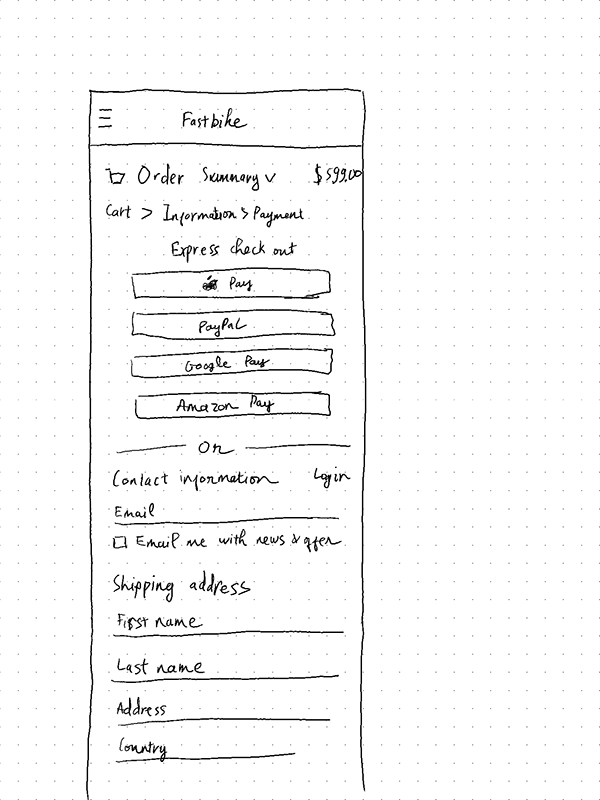 Fastbike
Order Summary $599.00
Cart > Information > Payment
Express check out
Pay
PayPal
Google Pay
Amazon Pay
Or
Contact information Login
Email
Email me with news & offer
Shipping address
First name
Last name
Address
Country